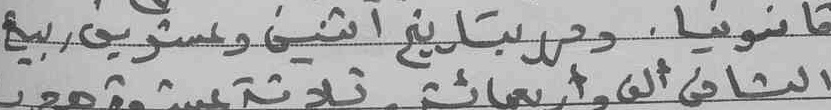 قانونيا. وحرر بتاريخ اثنين وعشرين ربيع
الثاني ألف وأربعمائة وثلاثة عشر